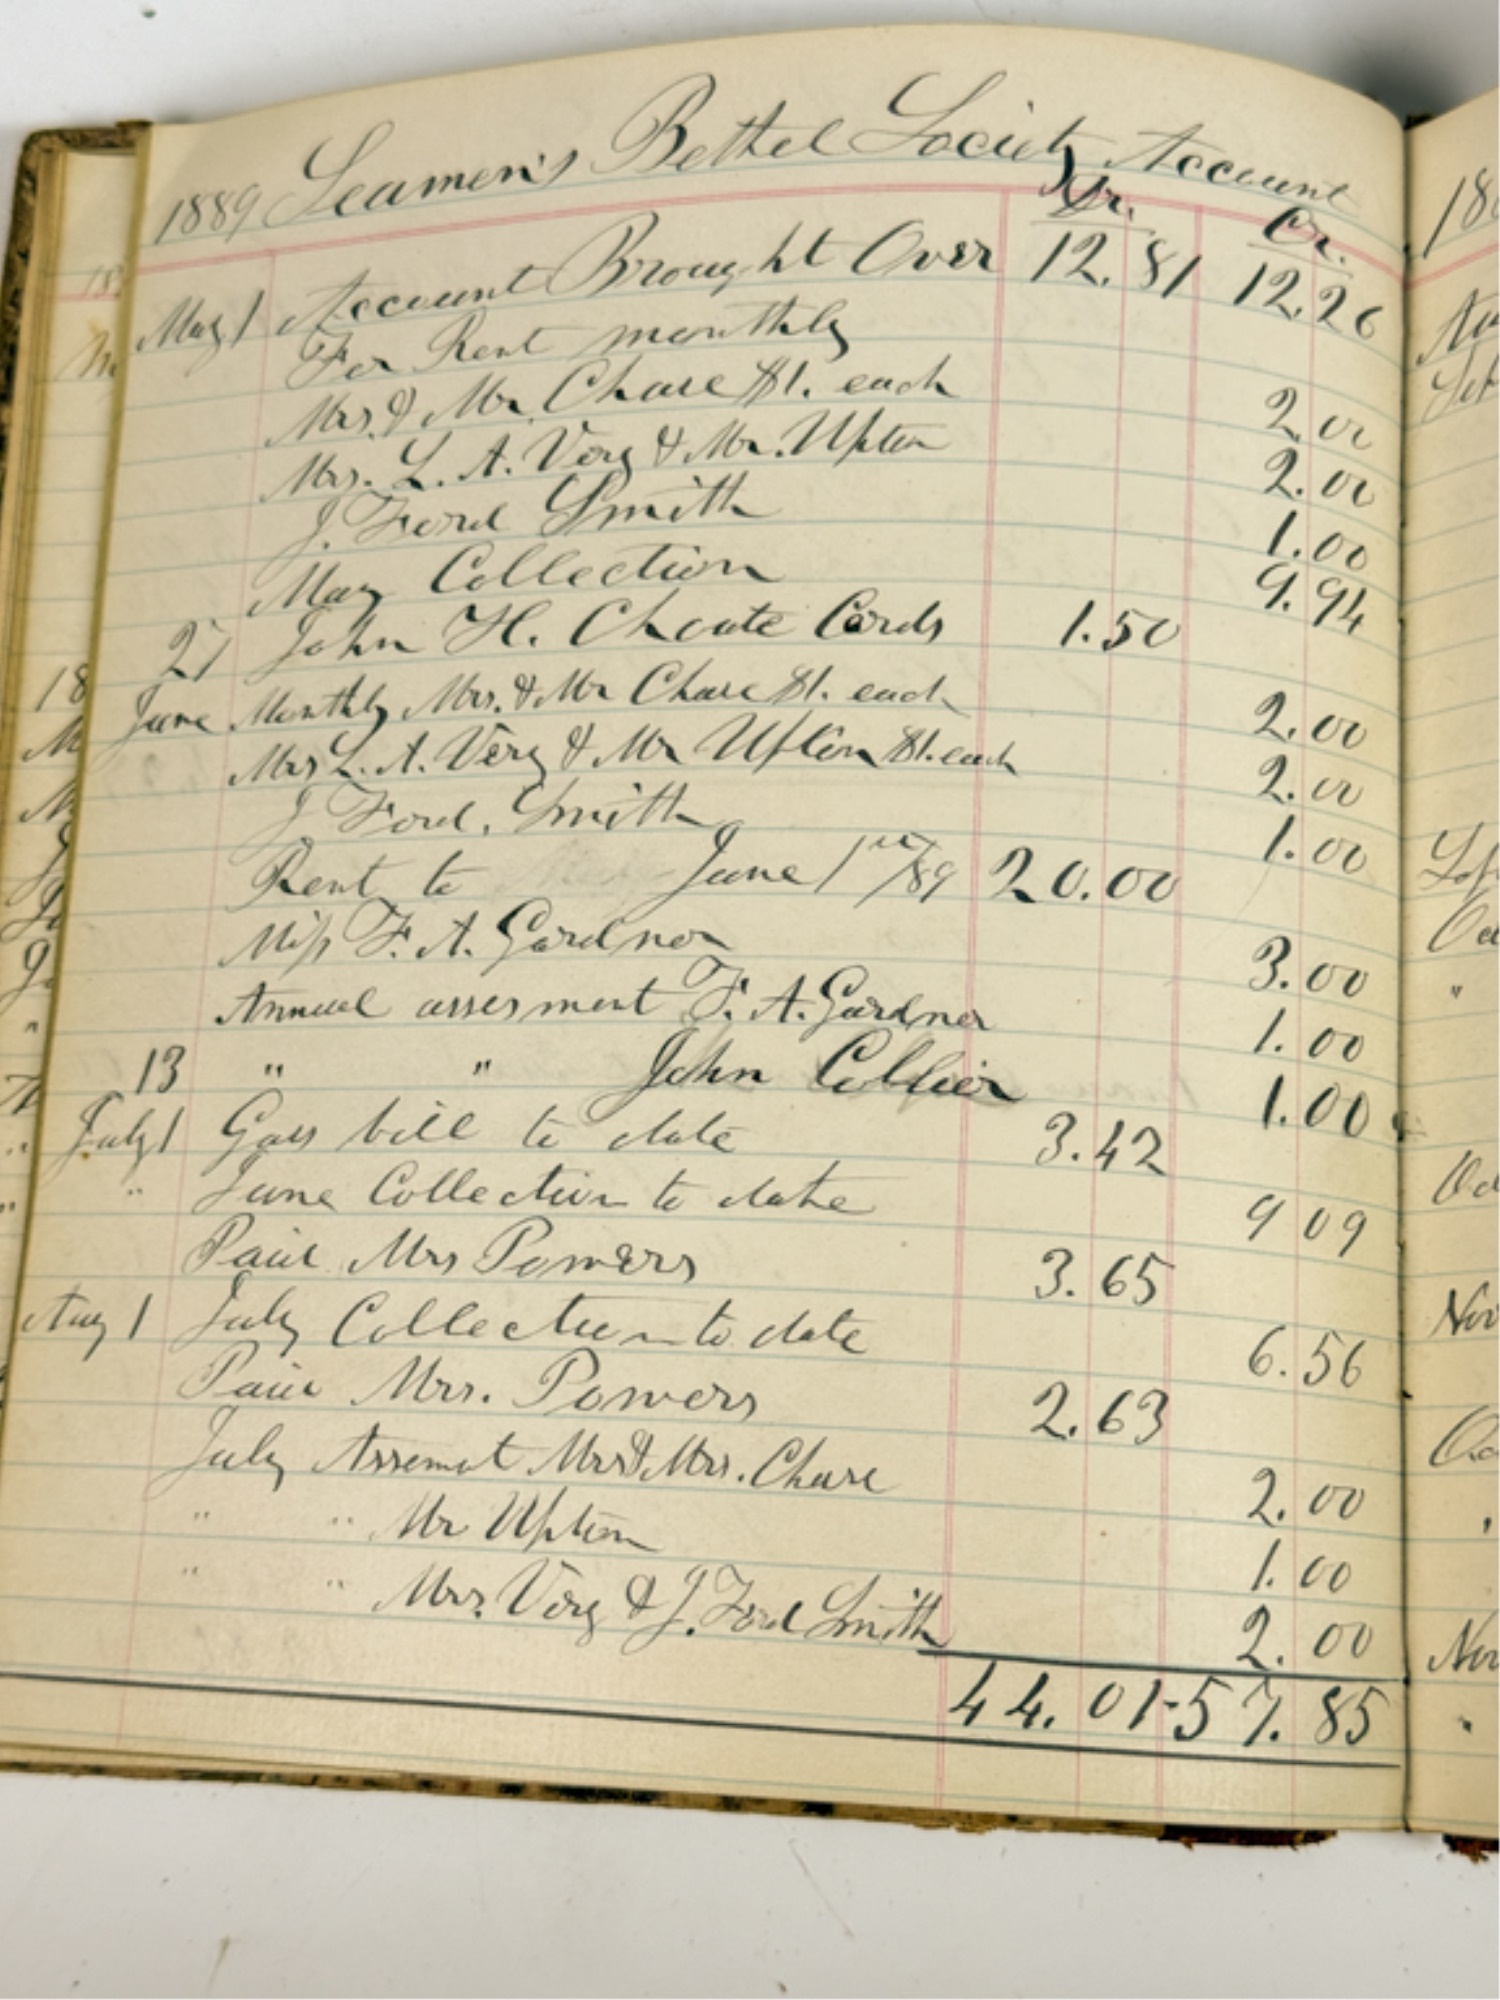 1889 Seamen's Bethel Society Account
Dr. Cr.
May 1 Account Brought Over 12.81 12.26
For Rent monthly
Mrs. & Mr. Chase $1. each 2.00
Mrs. L. A. Very & Mr. Upton 2.00
J. Ford Smith 1.00
May Collection 9.94
27 John H. Choate Cards 1.50
June Monthly Mrs. & Mr Chase $1. each 2.00
Mrs L. A. Very & Mr Upton $1. each 2.00
J Ford. Smith 1.00
Rent to June 1st/89 20.00
Miss F. A. Gardner 3.00
Annual assesment F. A. Gardner 1.00
13 " " John Collier 1.00
July 1 Gas bill to date 3.42
" June Collection to date 9 09
Paid Mrs Powers 3.65
Aug 1 July Collection to date 6.56
Paid Mrs. Powers 2.63
July Assemnt Mr & Mrs. Chase 2.00
" " Mr Upton 1.00
" " Mrs. Very & J. Ford Smith 2.00
44.01-57.85